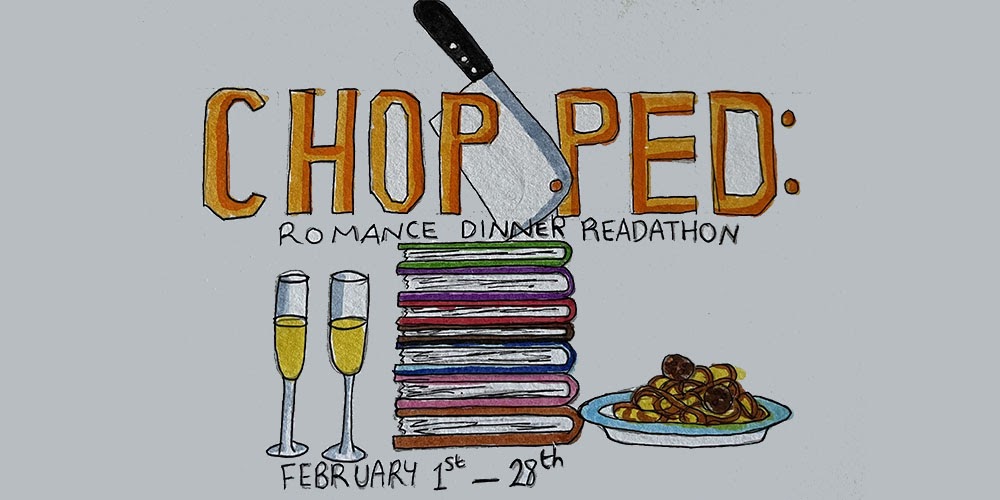 CHOPPED:
ROMANCE DINNER READATHON
FEBRUARY 1st — 28th